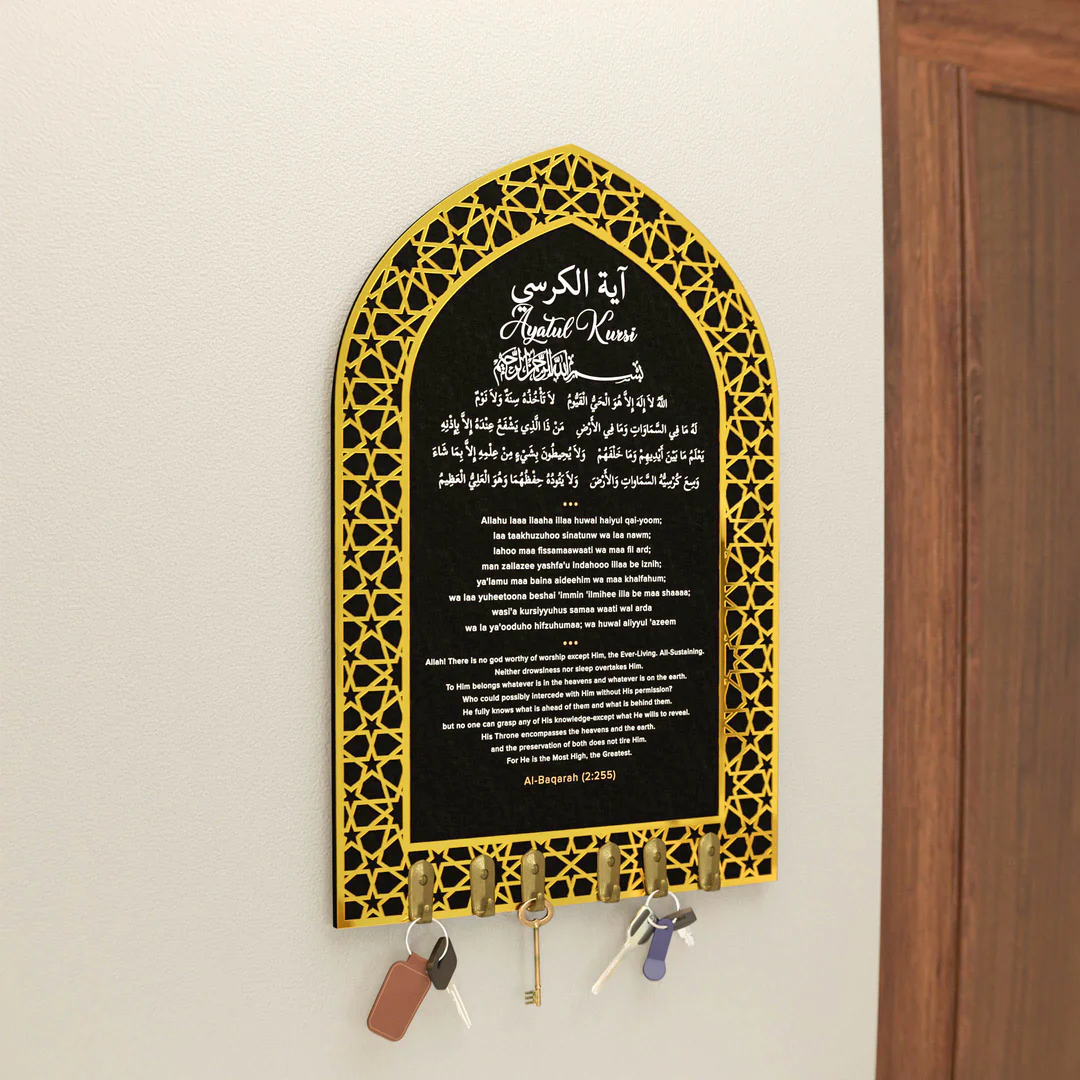 آية الكرسي
Ayatul Kursi
بسم الله الرحمن الرحيم
اللَّهُ لاَ إِلَهَ إِلاَّ هُوَ الْحَيُّ الْقَيُّومُ لاَ تَأْخُذُهُ سِنَةٌ وَلاَ نَوْمٌ
لَهُ مَا فِي السَّمَاوَاتِ وَمَا فِي الأَرْضِ مَنْ ذَا الَّذِي يَشْفَعُ عِنْدَهُ إِلاَّ بِإِذْنِهِ
يَعْلَمُ مَا بَيْنَ أَيْدِيهِمْ وَمَا خَلْفَهُمْ وَلاَ يُحِيطُونَ بِشَيْءٍ مِنْ عِلْمِهِ إِلاَّ بِمَا شَاءَ
وَسِعَ كُرْسِيُّهُ السَّمَاوَاتِ وَالأَرْضَ وَلاَ يَئُودُهُ حِفْظُهُمَا وَهُوَ الْعَلِيُّ الْعَظِيمُ
Allahu laaa ilaaha illaa huwal haiyul qai-yoom;
laa taakhuzuhoo sinatunw wa laa nawm;
lahoo maa fissamaawaati wa maa fil ard;
man zallazee yashfa'u indahooo illaa be iznih;
ya'lamu maa baina aideehim wa maa khalfahum;
wa laa yuheetoona beshai 'immin 'ilmihee illa be maa shaaaa;
wasi'a kursiyyuhus samaa waati wal arda
wa la ya'ooduho hifzuhumaa; wa huwal aliyyul 'azeem
Allah! There is no god worthy of worship except Him, the Ever-Living. All-Sustaining.
Neither drowsiness nor sleep overtakes Him.
To Him belongs whatever is in the heavens and whatever is on the earth.
Who could possibly intercede with Him without His permission?
He fully knows what is ahead of them and what is behind them.
but no one can grasp any of His knowledge-except what He wills to reveal.
His Throne encompasses the heavens and the earth.
and the preservation of both does not tire Him.
For He is the Most High, the Greatest.
Al-Baqarah (2:255)